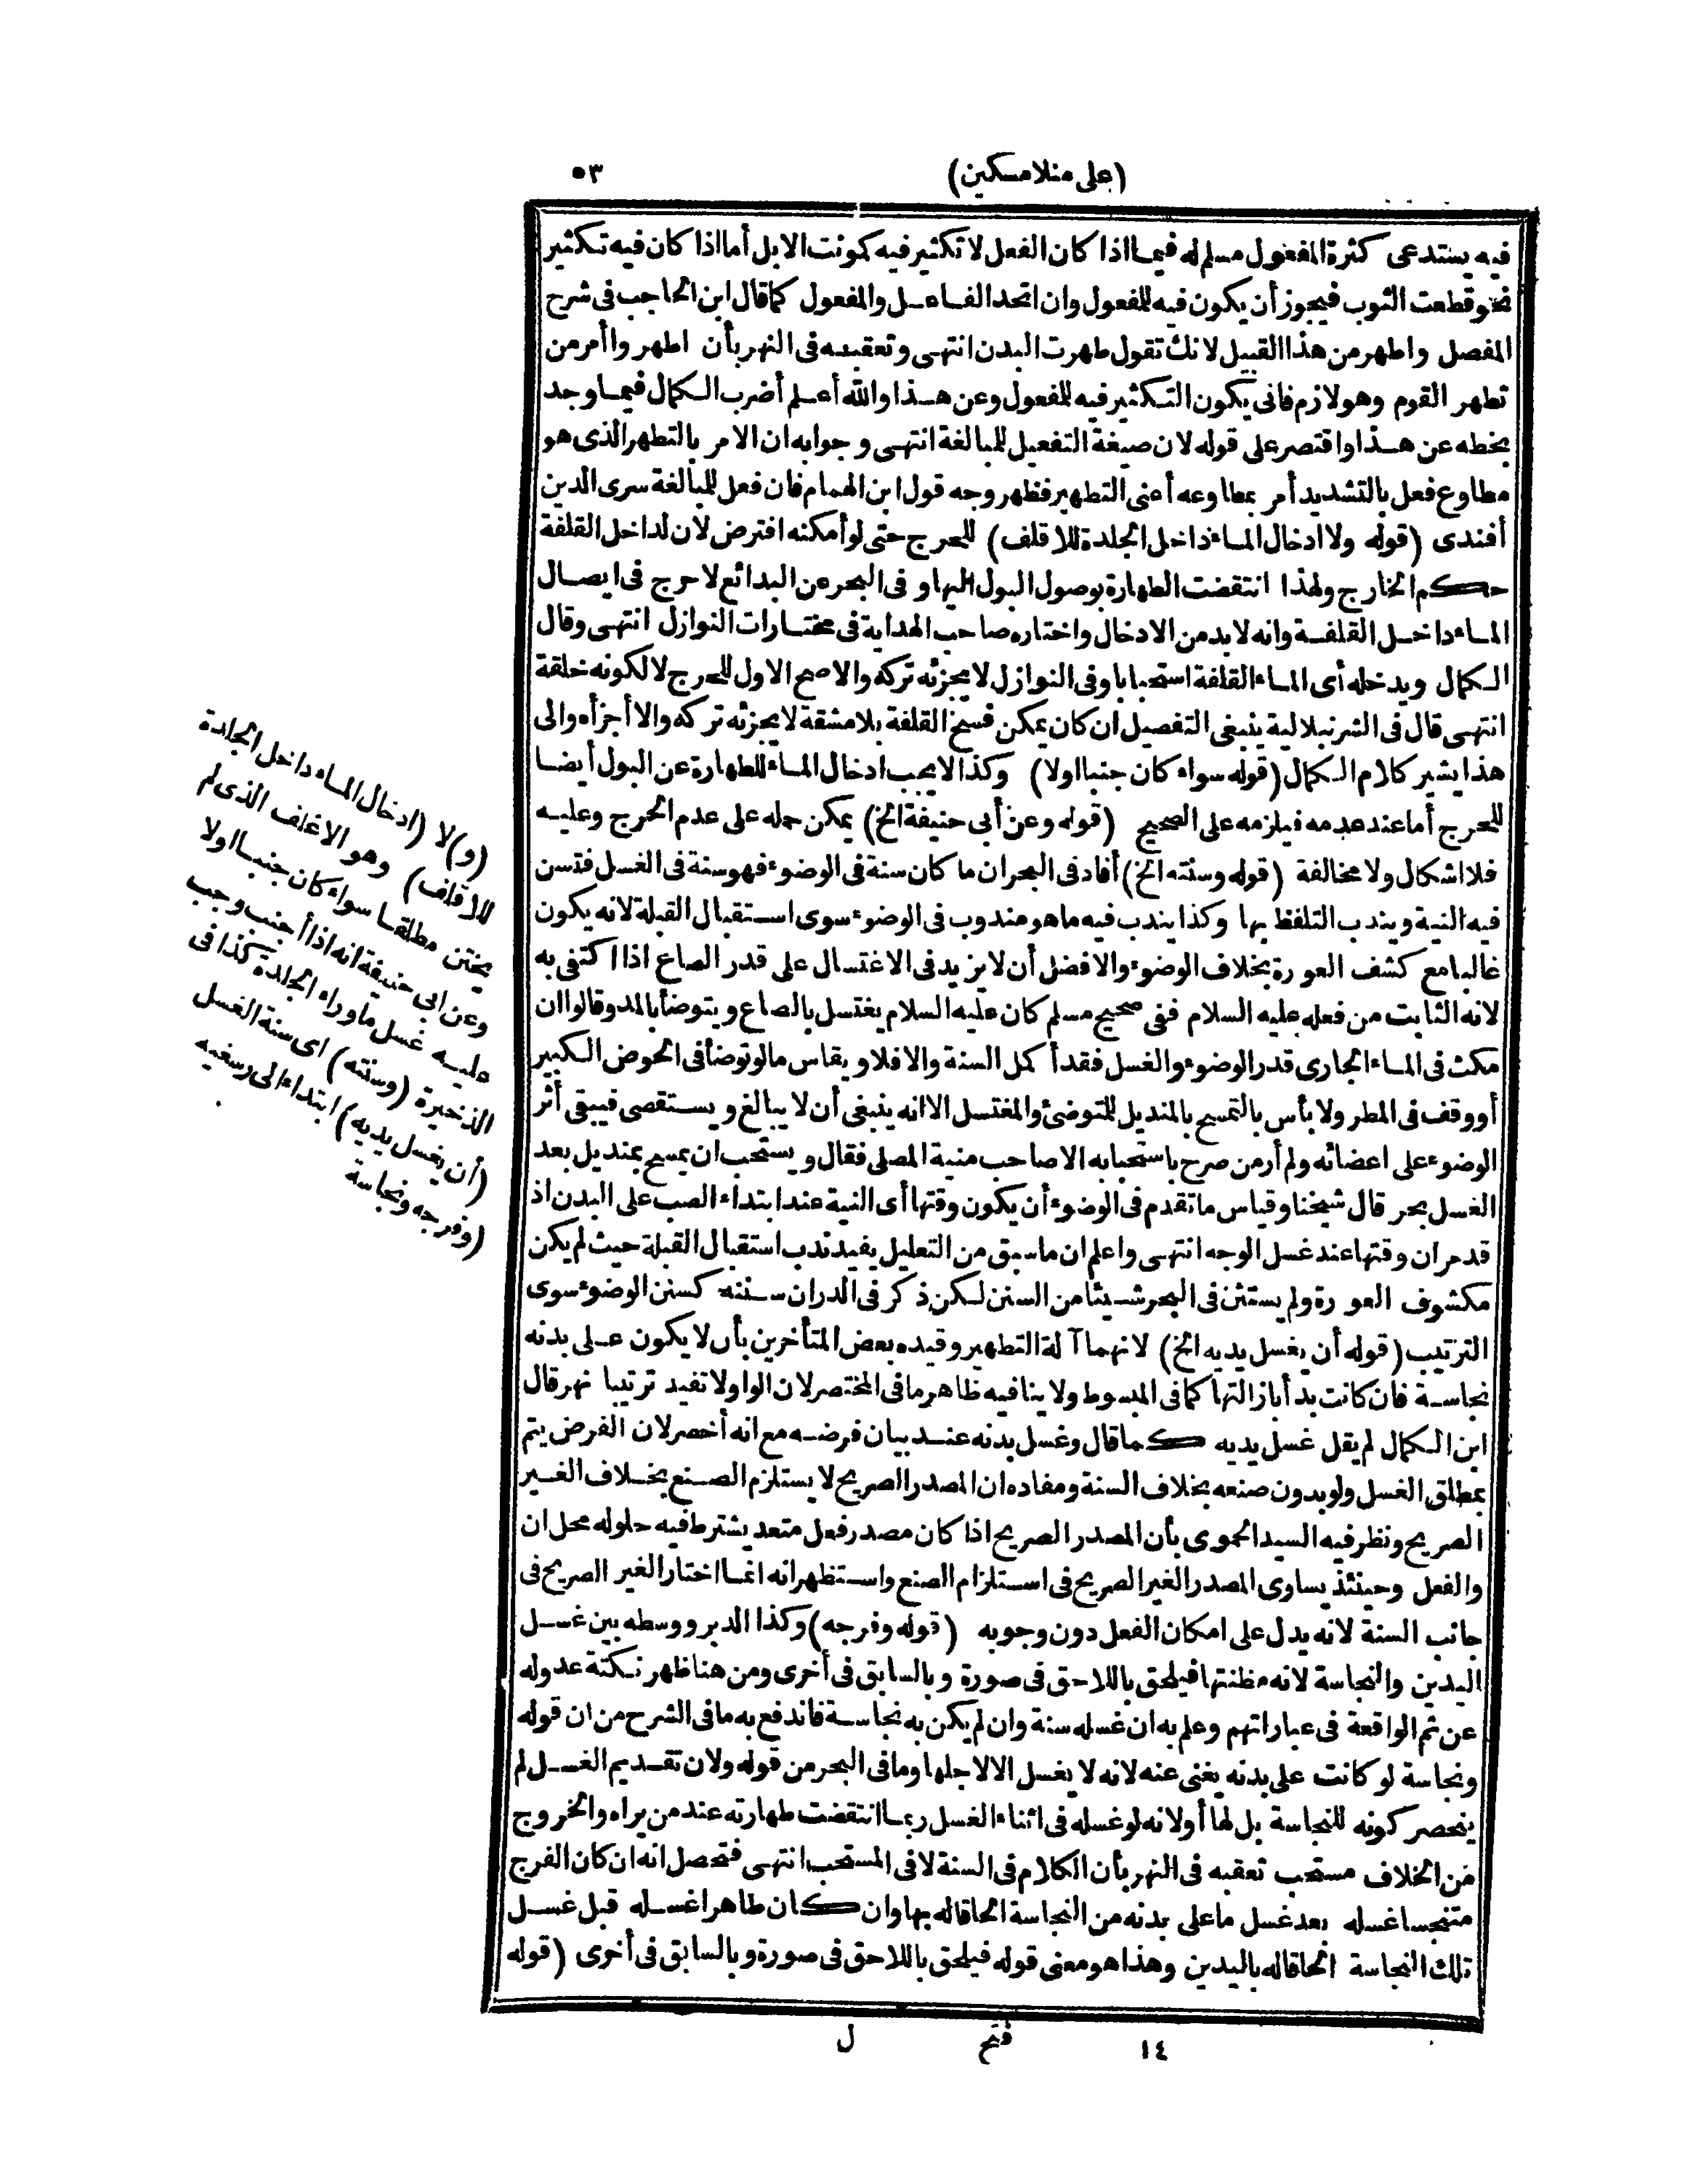 (على منلامسكين) ٥٣
فيه يستدعى كثرة المفعول مسلم له فيما اذا كان الفعل لا تكثير فيه كموتت الابل أما اذا كان فيه تكثير
نحو قطعت الثوب فيجوز أن يكون فيه للمفعول وان اتحد الفاعل والمفعول كما قال ابن الحاجب فى شرح
المفصل واطهر من هذا القبيل لانك تقول طهرت البدن انتهى وتعقبه فى النهر بأن اطهر واأمر من
تطهر القوم وهو لازم فانى يكون التكثير فيه للمفعول وعن هذا والله أعلم أضرب الكمال فيما وجد
بخطه عن هذا واقتصر على قوله لان صيغة التفعيل للمبالغة انتهى وجوابه ان الامر بالتطهر الذى هو
مطاوع فعل بالتشديد أمر بمطاوعه أعنى التطهير فظهر وجه قول ابن الهمام فان فعل للمبالغة سرى الدين
أفندى (قوله ولا ادخال الماء داخل الجلدة للاقلف) للحرج حتى لو أمكنه افترض لان لداخل القلفة
حكم الخارج ولهذا انتقضت الطهارة بوصول البول اليها وفى البحر عن البدائع لا حرج فى ايصال
الماء داخل القلفة وانه لابد من الادخال واختاره صاحب الهداية فى مختارات النوازل انتهى وقال
الكمال ويدخله أى الماء القلفة استحبابا وفى النوازل لا يجزئه تركه والاصح الاول للحرج لا لكونه خلقة
انتهى قال فى الشرنبلالية ينبغى التفصيل ان كان يمكن فسخ القلفة بلا مشقة لا يجزئه تركه والا أجزأه والى
هذا يشير كلام الكمال (قوله سواء كان جنبا اولا) وكذا لا يجب ادخال الماء للطهارة عن البول أيضا
للحرج أما عند عدمه فيلزمه على الصحيح (قوله وعن أبى حنيفة الخ) يمكن حمله على عدم الحرج وعليه
فلا اشكال ولا مخالفة (قوله وسنته الخ) أفاد فى البحر ان ما كان سنة فى الوضوء فهو سنة فى الغسل فتسن
فيه النية ويندب التلفظ بها وكذا يندب فيه ما هو مندوب فى الوضوء سوى استقبال القبلة لانه يكون
غالبا مع كشف العورة بخلاف الوضوء والافضل أن لا يزيد فى الاغتسال على قدر الصاع اذا اكتفى به
لانه الثابت من فعله عليه السلام ففى صحيح مسلم كان عليه السلام يغتسل بالصاع ويتوضأ بالمد وقالوا ان
مكث فى الماء الجارى قدر الوضوء والغسل فقد أكمل السنة والا فلا ويقاس ما لو توضأ فى الحوض الكبير
أو وقف فى المطر ولا بأس بالتمسح بالمنديل للمتوضئ والمغتسل الا انه ينبغى أن لا يبالغ ويستقصى فيبقى أثر
الوضوء على اعضائه ولم أر من صرح باستحبابه الا صاحب منية المصلى فقال ويستحب ان يمسح بمنديل بعد
الغسل بحر قال شيخنا وقياس ما تقدم فى الوضوء أن يكون وقتها أى النية عند ابتداء الصب على البدن اذ
قد مر ان وقتها عند غسل الوجه انتهى واعلم ان ما سبق من التعليل يفيد ندب استقبال القبلة حيث لم يكن
مكشوف العورة ولم يستثن فى البحر شيئا من السنن لكن ذكر فى الدر ان سننه كسنن الوضوء سوى
الترتيب (قوله أن يغسل يديه الخ) لانهما آلة التطهير وقيده بعض المتأخرين بأن لا يكون على بدنه
نجاسة فان كانت بدأ بازالتها كما فى المبسوط ولا ينافيه ظاهر ما فى المختصر لان الواو لا تفيد ترتيبا نهر قال
ابن الكمال لم يقل غسل يديه كما قال وغسل بدنه عند بيان فرضه مع انه أخصر لان الفرض يتم
بمطلق الغسل ولو بدون صنعه بخلاف السنة ومفاده ان المصدر الصريح لا يستلزم الصنع بخلاف الغير
الصريح ونظر فيه السيد الحموى بأن المصدر الصريح اذا كان مصدر فعل متعد يشترط فيه حلوله محل ان
والفعل وحينئذ يساوى المصدر الغير الصريح فى استلزام الصنع واستظهر انه انما اختار الغير الصريح فى
جانب السنة لانه يدل على امكان الفعل دون وجوبه (قوله وفرجه) وكذا الدبر ووسطه بين غسل
اليدين والنجاسة لانه مظنتها فيلحق باللاحق فى صورة وبالسابق فى أخرى ومن هنا ظهر نكتة عدوله
عن ثم الواقعة فى عباراتهم وعلم به ان غسله سنة وان لم يكن به نجاسة فاندفع به ما فى الشرح من ان قوله
ونجاسة لو كانت على بدنه يغنى عنه لانه لا يغسل الا لاجلها وما فى البحر من قوله ولان تقديم الغسل لم
ينحصر كونه للنجاسة بل لها أو لانه لو غسله فى اثناء الغسل ربما انتقضت طهارته عند من يراه والخروج
من الخلاف مستحب تعقبه فى النهر بأن الكلام فى السنة لا فى المستحب انتهى فتحصل انه ان كان الفرج
متنجسا غسله بعد غسل ما على بدنه من النجاسة الحاقا له بها وان كان طاهرا غسله قبل غسل
تلك النجاسة الحاقا له باليدين وهذا هو معنى قوله فيلحق باللاحق فى صورة وبالسابق فى أخرى (قوله
(و) لا (ادخال الماء داخل الجلدة
للاقلف) وهو الاغلف الذى لم
يختن مطلقا سواء كان جنبا اولا
وعن ابى حنيفة انه اذا أجنب وجب
عليه غسل ما وراء الجلدة كذا فى
الذخيرة (وسنته) اى سنة الغسل
(أن يغسل يديه) ابتداء الى رسغيه
(وفرجه ونجاسة
١٤ فتح ل